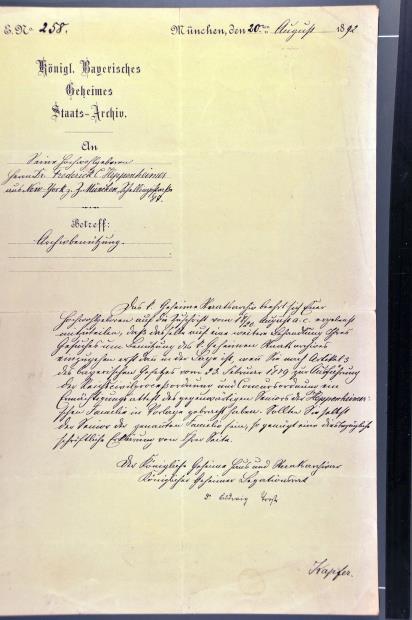 E. No 258.
München, den 20ten August 1892
Königl. Bayerisches
Geheimes
Staats-Archiv.
An
Seine Hochwohlgeboren
Herrn Dr. Frederick C. Heppenheimer
aus New-York z. Z. München,
Betreff:
Archivbenützung.
Das k. Geheime Staatsarchiv beehrt sich Euer
Hochwohlgeboren auf die Zuschrift vom 18/20 August a. c. ergebenst
mitzuteilen, daß dasselbe auf eine weitere Behandlung Ihres
Gesuches um Benützung des k. Geheimen Staatsarchives
einzugehen erst dann in der Lage ist, wenn Sie nach Artikel 3
des bayerischen Gesetzes vom 23. Februar 1879 zur Ausführung
der Reichscivilprozeßordnung und Concursordnung ein
Ermächtigungsattest des gegenwärtigen Seniors der Heppenheimer-
schen Familie in Vorlage gebracht haben. Sollten Sie selbst
der Senior der genannten Familie sein, so genügt eine diesbezügliche
schriftliche Erklärung von Ihrer Seite.
Der Königliche Geheime Haus und Staatsarchivar
Königlicher Geheimer Legationsrat
Dr. Ludwig Trost
Kapfer.